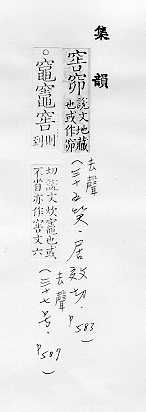 集韻
窖窌說文地藏
也或作窌
去聲
(三十五笑·居效切·P583)
○竈竈窖則
到
切說文炊竈也或
不省亦作窖文六
去聲
(三十七号·P587)